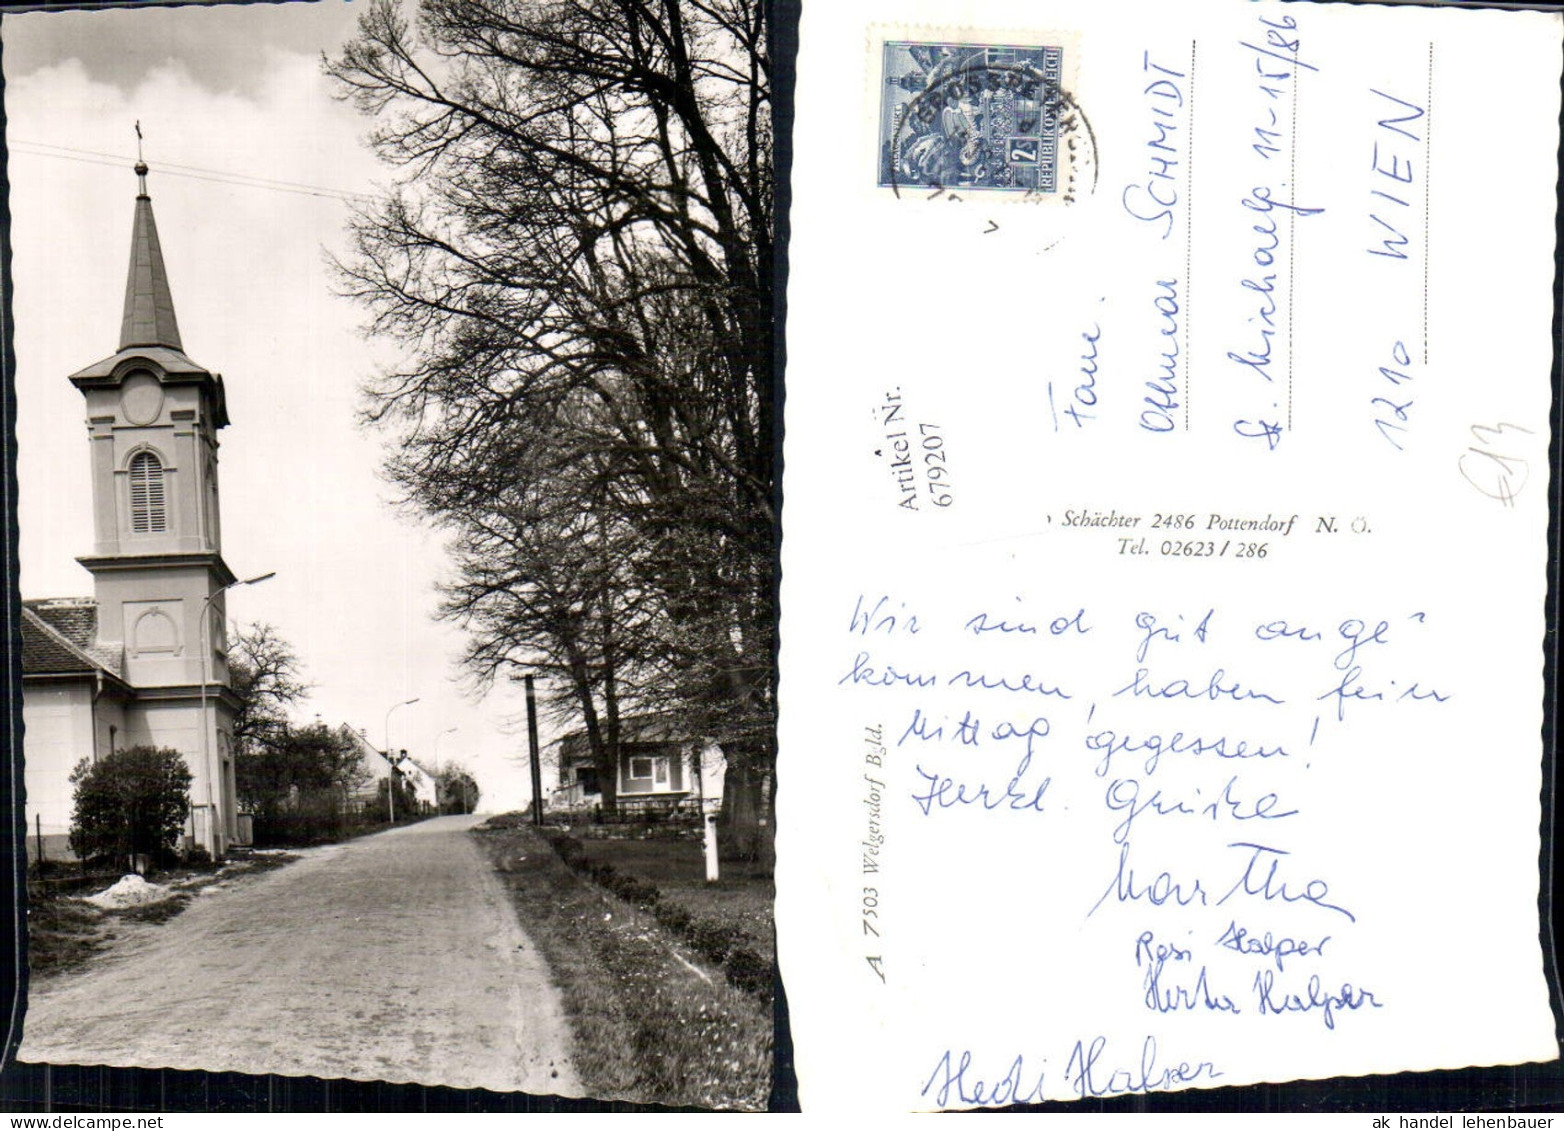 REPUBLIK ÖSTERREICH
2
Fam.
Othmar SCHMIDT
St. Michaelg. 11-15/86
1210 WIEN
Artikel Nr.
679207
€13
Schächter 2486 Pottendorf N. Ö.
Tel. 02623 / 286
A 7503 Welgersdorf Bgld.
Wir sind gut ange"
kommen, haben fein
Mittag gegessen!
Herzl. Grüße
Martha
Resi Halper
Herta Halper
Hedi Halper
ak handel lehenbauer